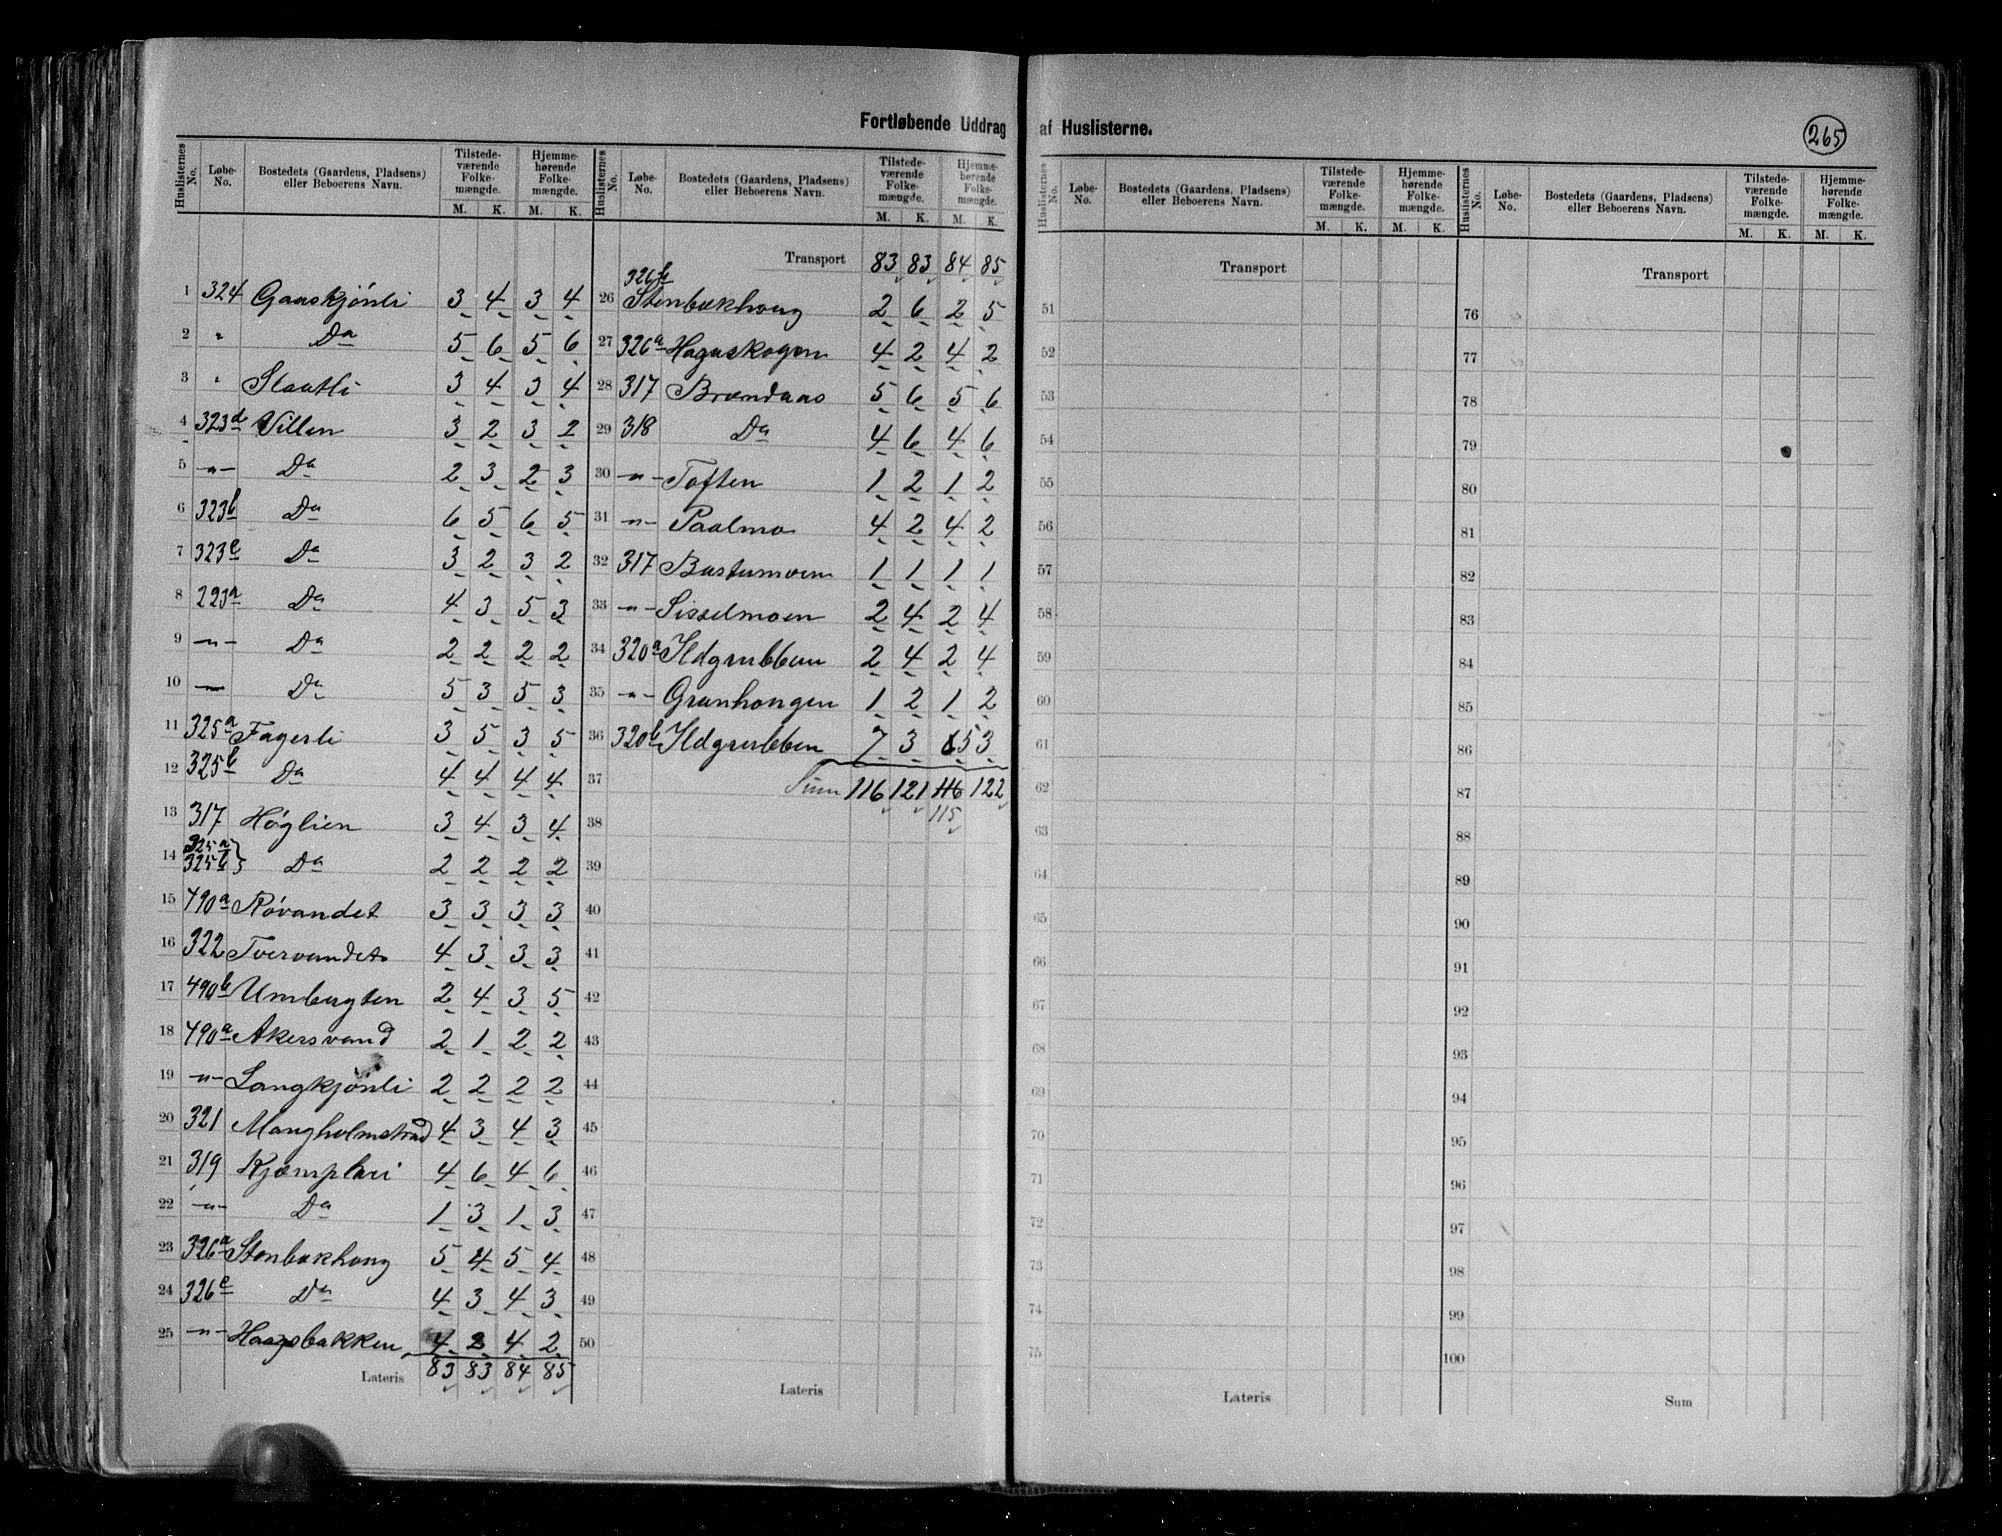 Fortløbende Uddrag af Huslisterne.
265
Huslisternes No. Løbe-No. Bostedets (Gaardens, Pladsens) eller Beboerens Navn. Tilstedeværende Folkemængde. M. K. Hjemmehørende Folkemængde. M. K.
1 324 Gaaskjónli 3 4 3 4
2 " Da 5 6 5 6
3 " Slaatli 3 4 3 4
4 323d Villen 3 2 3 2
5 -"- Da 2 3 2 3
6 323b Da 6 5 6 5
7 323c Da 3 2 3 2
8 223a Da 4 3 5 3
9 -"- Da 2 2 2 2
10 -"- Da 5 3 5 3
11 325a Fagerli 3 5 3 5
12 325b Da 4 4 4 4
13 317 Høglien 3 4 3 4
14 325a 325b } Da 2 2 2 2
15 490a Róvandet 3 3 3 3
16 322 Tvervandets 4 3 3 3
17 490b Umbugten 2 4 3 5
18 490a Akersvand 2 1 2 2
19 -"- Langkjónli 2 2 2 2
20 321 Mangholmstrad 4 3 4 3
21 319 Kjæmplsei 4 6 4 6
22 -"- Da 1 3 1 3
23 326a Stenbækhaug 5 4 5 4
24 326c Da 4 3 4 3
25 -"- Haugsbakken 4 2 4 2
Lateris 83 83 84 85
Huslisternes No. Løbe-No. Bostedets (Gaardens, Pladsens) eller Beboerens Navn. Tilstedeværende Folkemængde. M. K. Hjemmehørende Folkemængde. M. K.
Transport 83 83 84 85
26 326b Stenbækhaug 2 6 2 5
27 326a Hagaskogen 4 2 4 2
28 317 Brændaas 5 6 5 6
29 318 Da 4 6 4 6
30 -"- Toften 1 2 1 2
31 -"- Paalmo 4 2 4 2
32 317 Bustumoen 1 1 1 1
33 -"- Sisselmoen 2 4 2 4
34 320a Ildgrubben 2 4 2 4
35 -"- Granhaugen 1 2 1 2
36 320b Ildgrubben 7 3 5 3
37 Sum 116 121 116 122
38 115
39
40
41
42
43
44
45
46
47
48
49
50
Lateris
Huslisternes No. Løbe-No. Bostedets (Gaardens, Pladsens) eller Beboerens Navn. Tilstedeværende Folkemængde. M. K. Hjemmehørende Folkemængde. M. K.
Transport
51
52
53
54
55
56
57
58
59
60
61
62
63
64
65
66
67
68
69
70
71
72
73
74
75
Lateris
Huslisternes No. Løbe-No. Bostedets (Gaardens, Pladsens) eller Beboerens Navn. Tilstedeværende Folkemængde. M. K. Hjemmehørende Folkemængde. M. K.
Transport
76
77
78
79
80
81
82
83
84
85
86
87
88
89
90
91
92
93
94
95
96
97
98
99
100
Sum